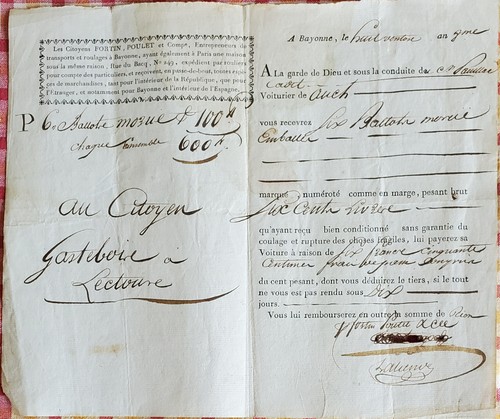 Les Citoyens FORTIN, POULET et Compe, Entrepreneurs de
transports et roulages à Bayonne, ayant également à Paris une maison
sous la même raison, Rue du Bacq, No. 249, expédient par roulier
pour compte des particuliers, et reçoivent, en passe-de-bout, toutes espè-
ces de marchandises, tant pour l'intérieur de la République, que pour
l'Etranger, et notamment pour Bayonne et l'intérieur de l'Espagne.
P 6. Ballots morue 100
chaque Ensemble 600
au Citoyen
Gasteboie a
Lectoure
A Bayonne, le huit ventose an 9me
A La garde de Dieu et sous la conduite de
Voiturier de auch
vous recevrez Six Ballots morue
Emballé
marqué, numéroté comme en marge, pesant brut
Six Cents Livres
qu'ayant reçu bien conditionné sans garantie du
coulage et rupture des choses fragiles, lui payerez sa
Voiture à raison de Six francs Cinquante
Centimes
du cent pesant, dont vous déduirez le tiers, si le tout
ne vous est pas rendu sous Dix
jours.
Vous lui rembourserez en outre la somme de Rien
Fortin Poulet &Cie